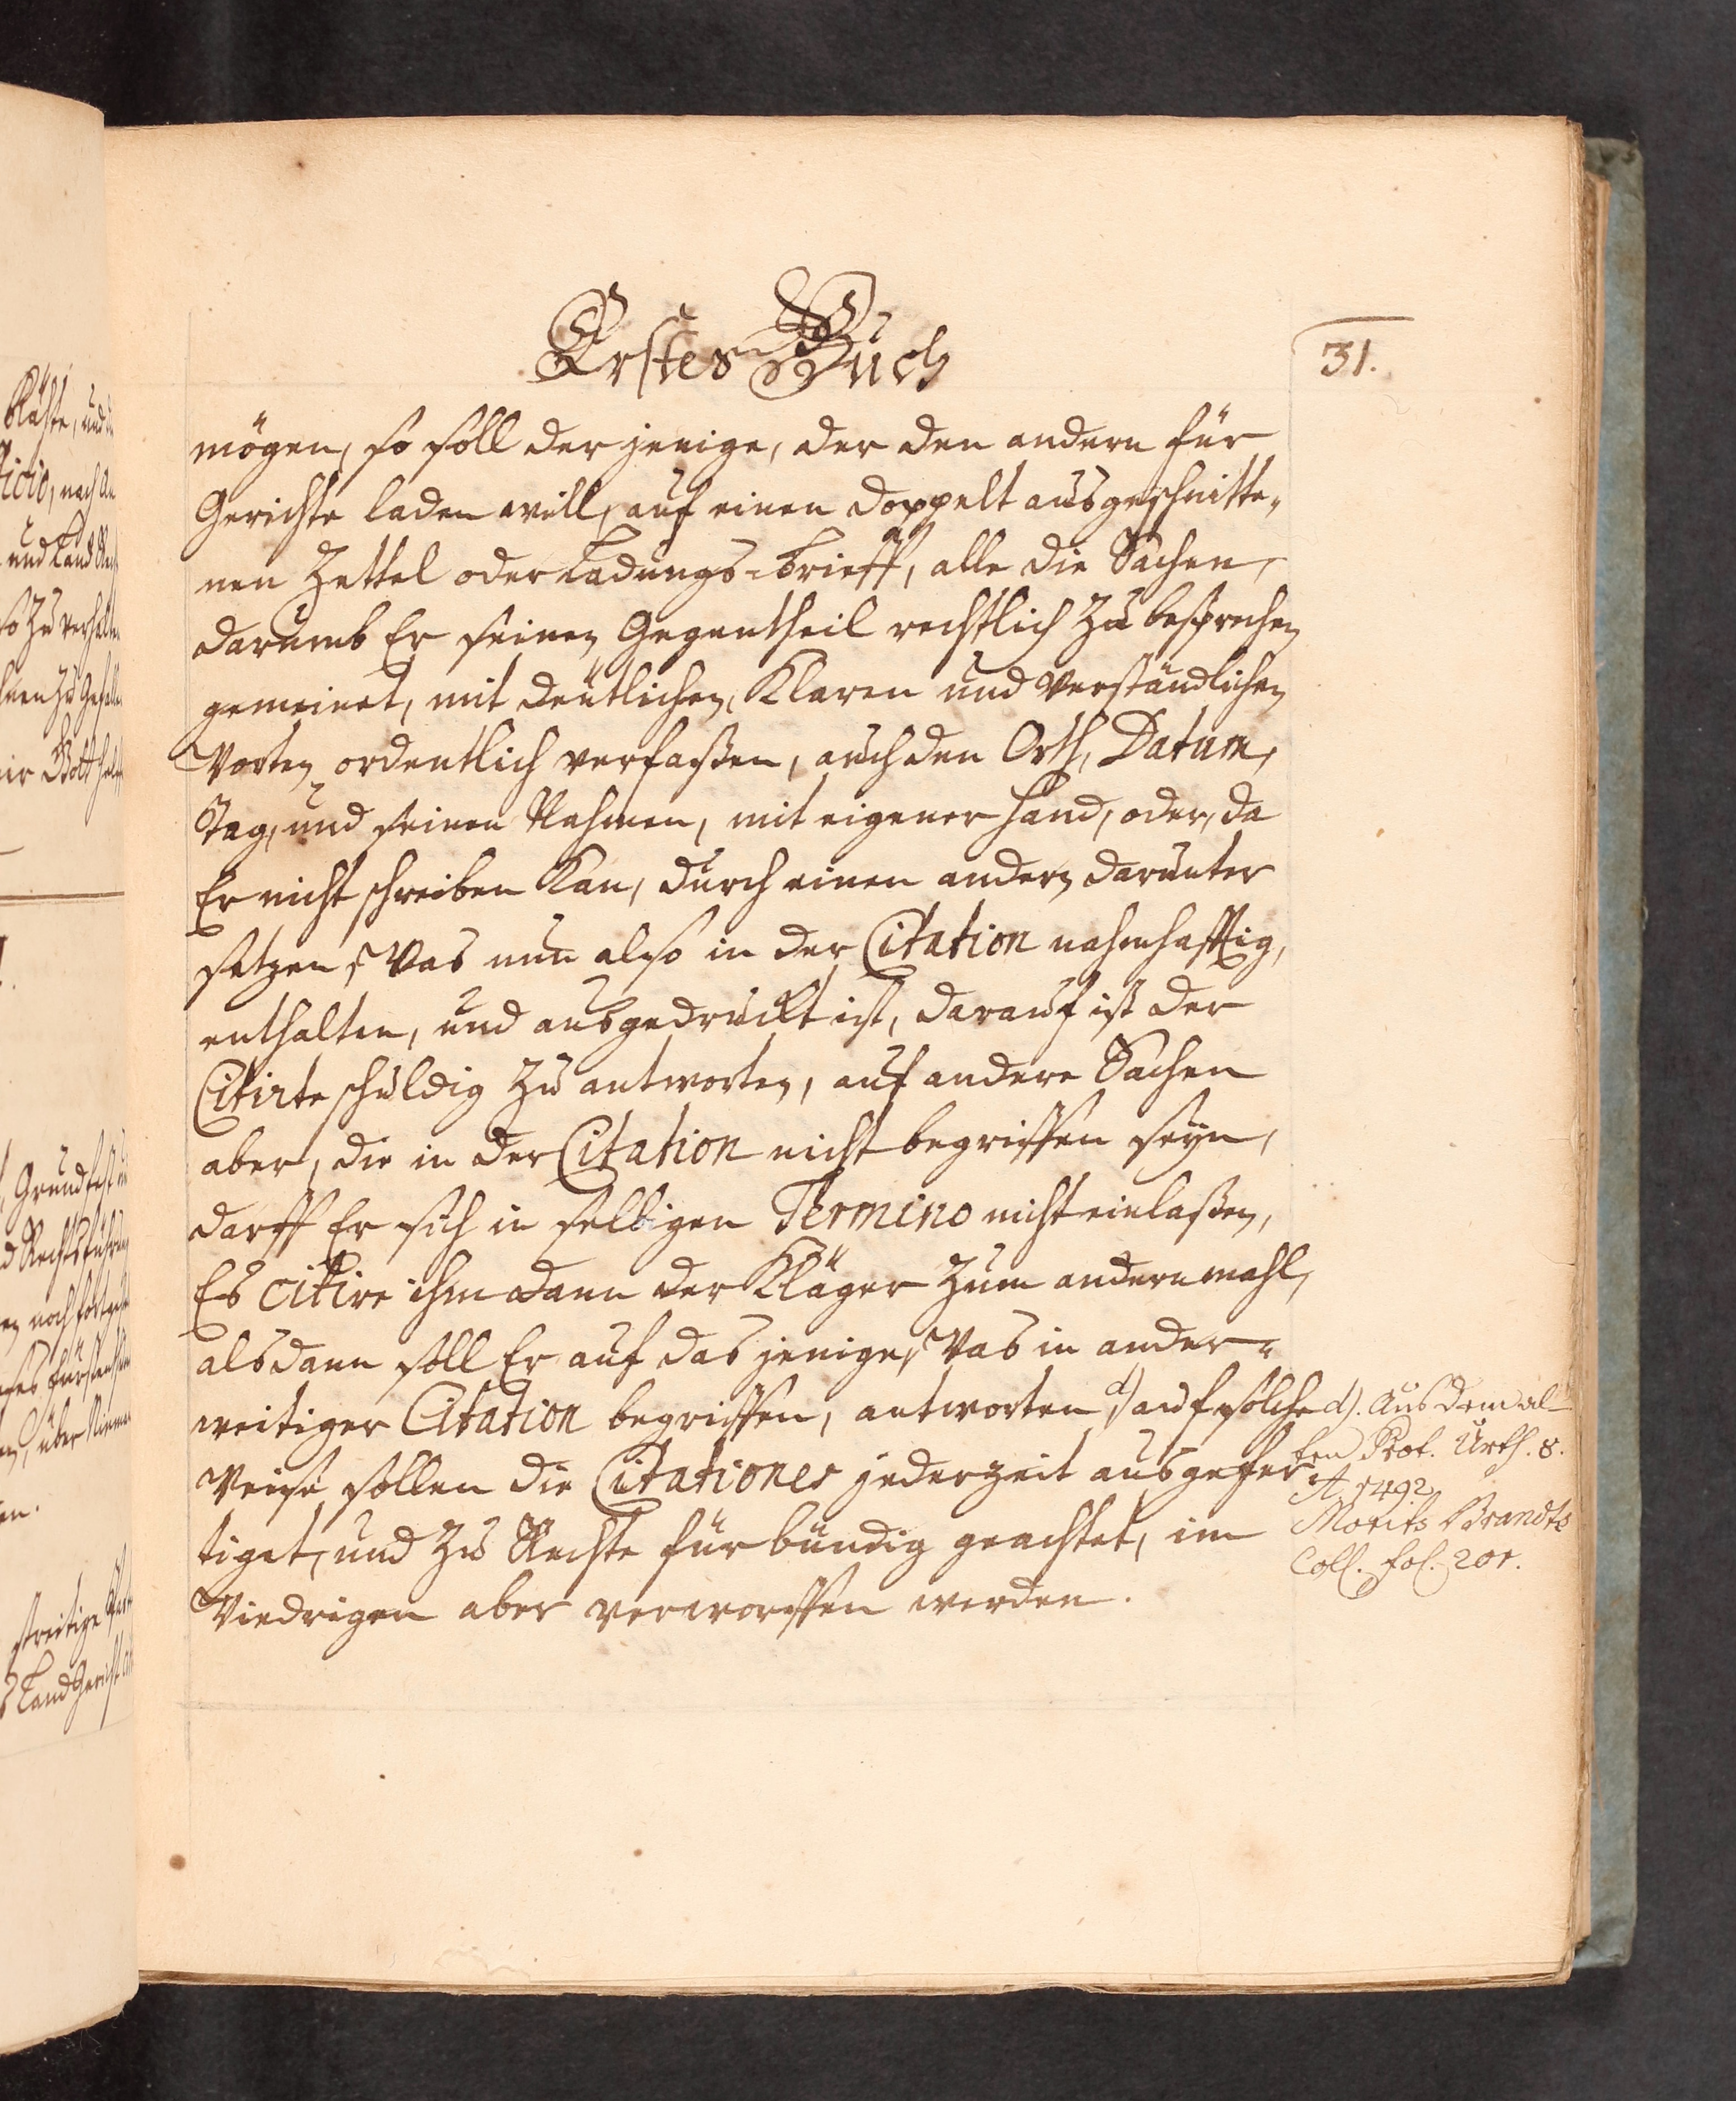 Erstes Buch
31.
mögen, so soll der jenige, der den andern für
Gerichte laden will, auf einen doppelt ausgeschnitte-
nen Zettel oder Ladungs-Brieff, alle die Sachen,
darumb Er seinen Gegentheil rechtlich zu besprechen
gemeinet, mit deutlichen, Klaren und verständlichen
Worten ordentlich verfaßen, auch den Orth, Datum,
Tag, und seinen Nahmen, mit eigener Hand, oder, da
Er nicht schreiben Kan, durch einen andern darunter
setzen, Was nun also in der Citation nahmhafftig,
enthalten, und ausgedruckt ist, darauf ist der
Citirte schuldig zu antworten, auf andere Sachen
aber, die in der Citation nicht begriffen seyn,
darff Er sich in selbigen Termino nicht einlaßen,
Es citire ihm dann der Kläger zum andern mahl,
alsdann soll Er auf das jenige, Was in ander-
weitiger Citation begriffen, antworten d) auf solche
Weise sollen die Citationes jederzeit ausgefer
tiget, und zu Rechte für bündig geachtet, im
Wiedrigen aber verworffen werden.
d). Aus dem al
ten Prot. Urth. 8.
A. 1492
Morits Brandts
Coll. fol. 201.